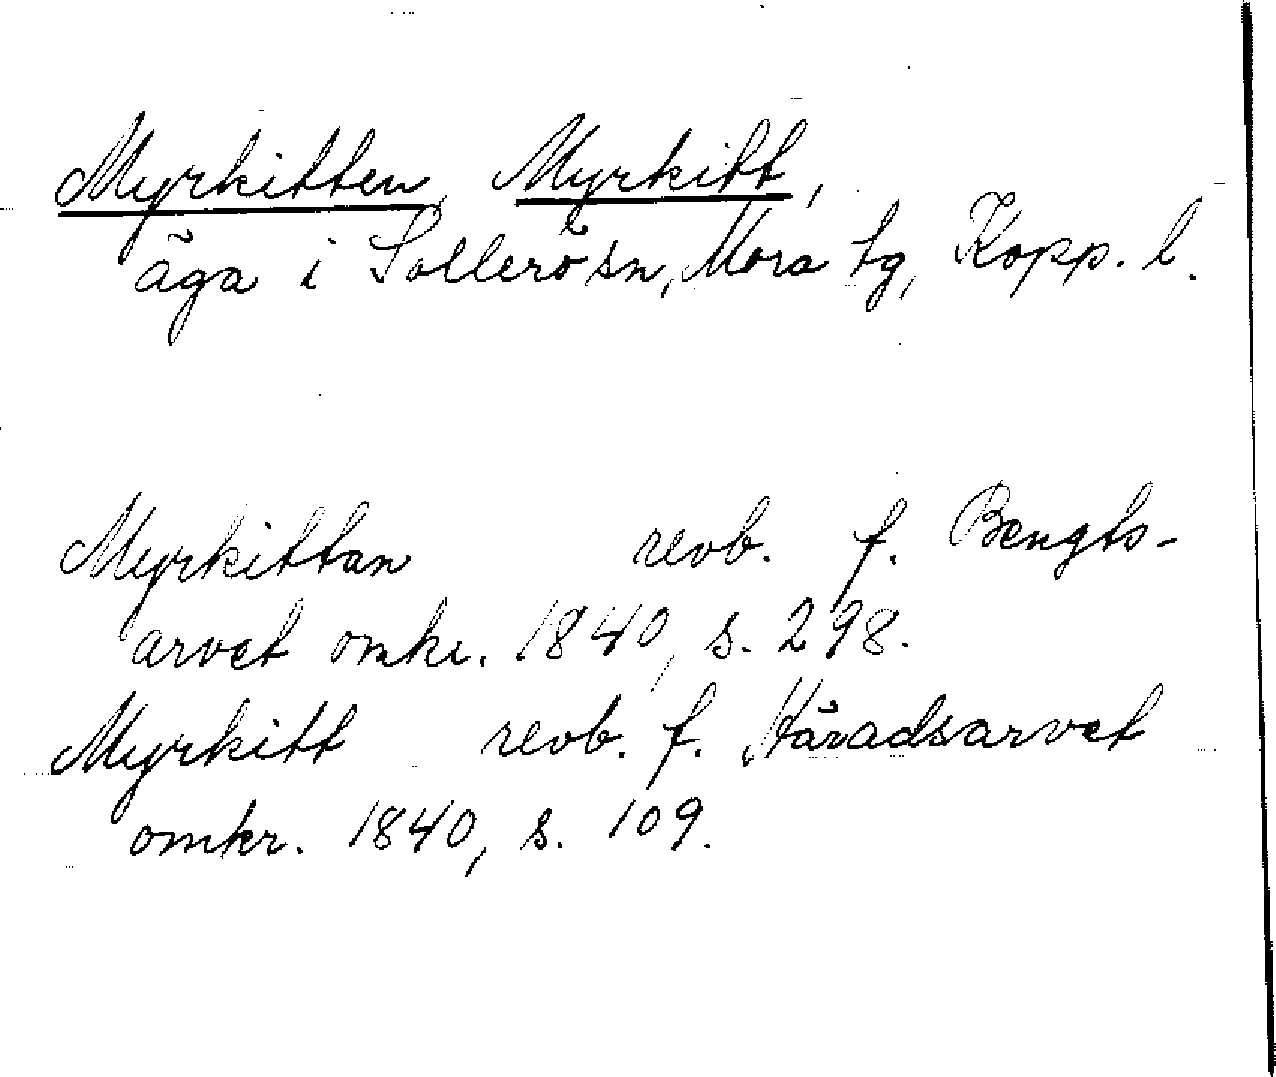 Myrkitten, Myrkitt,
äga i Sollerö sn, Mora tg, Kopp. l.
Myrkittan revb. f. Bengts-
arvet omkr. 1840, s. 298.
Myrkitt revb. f. Häradsarvet
omkr. 1840, s. 109.